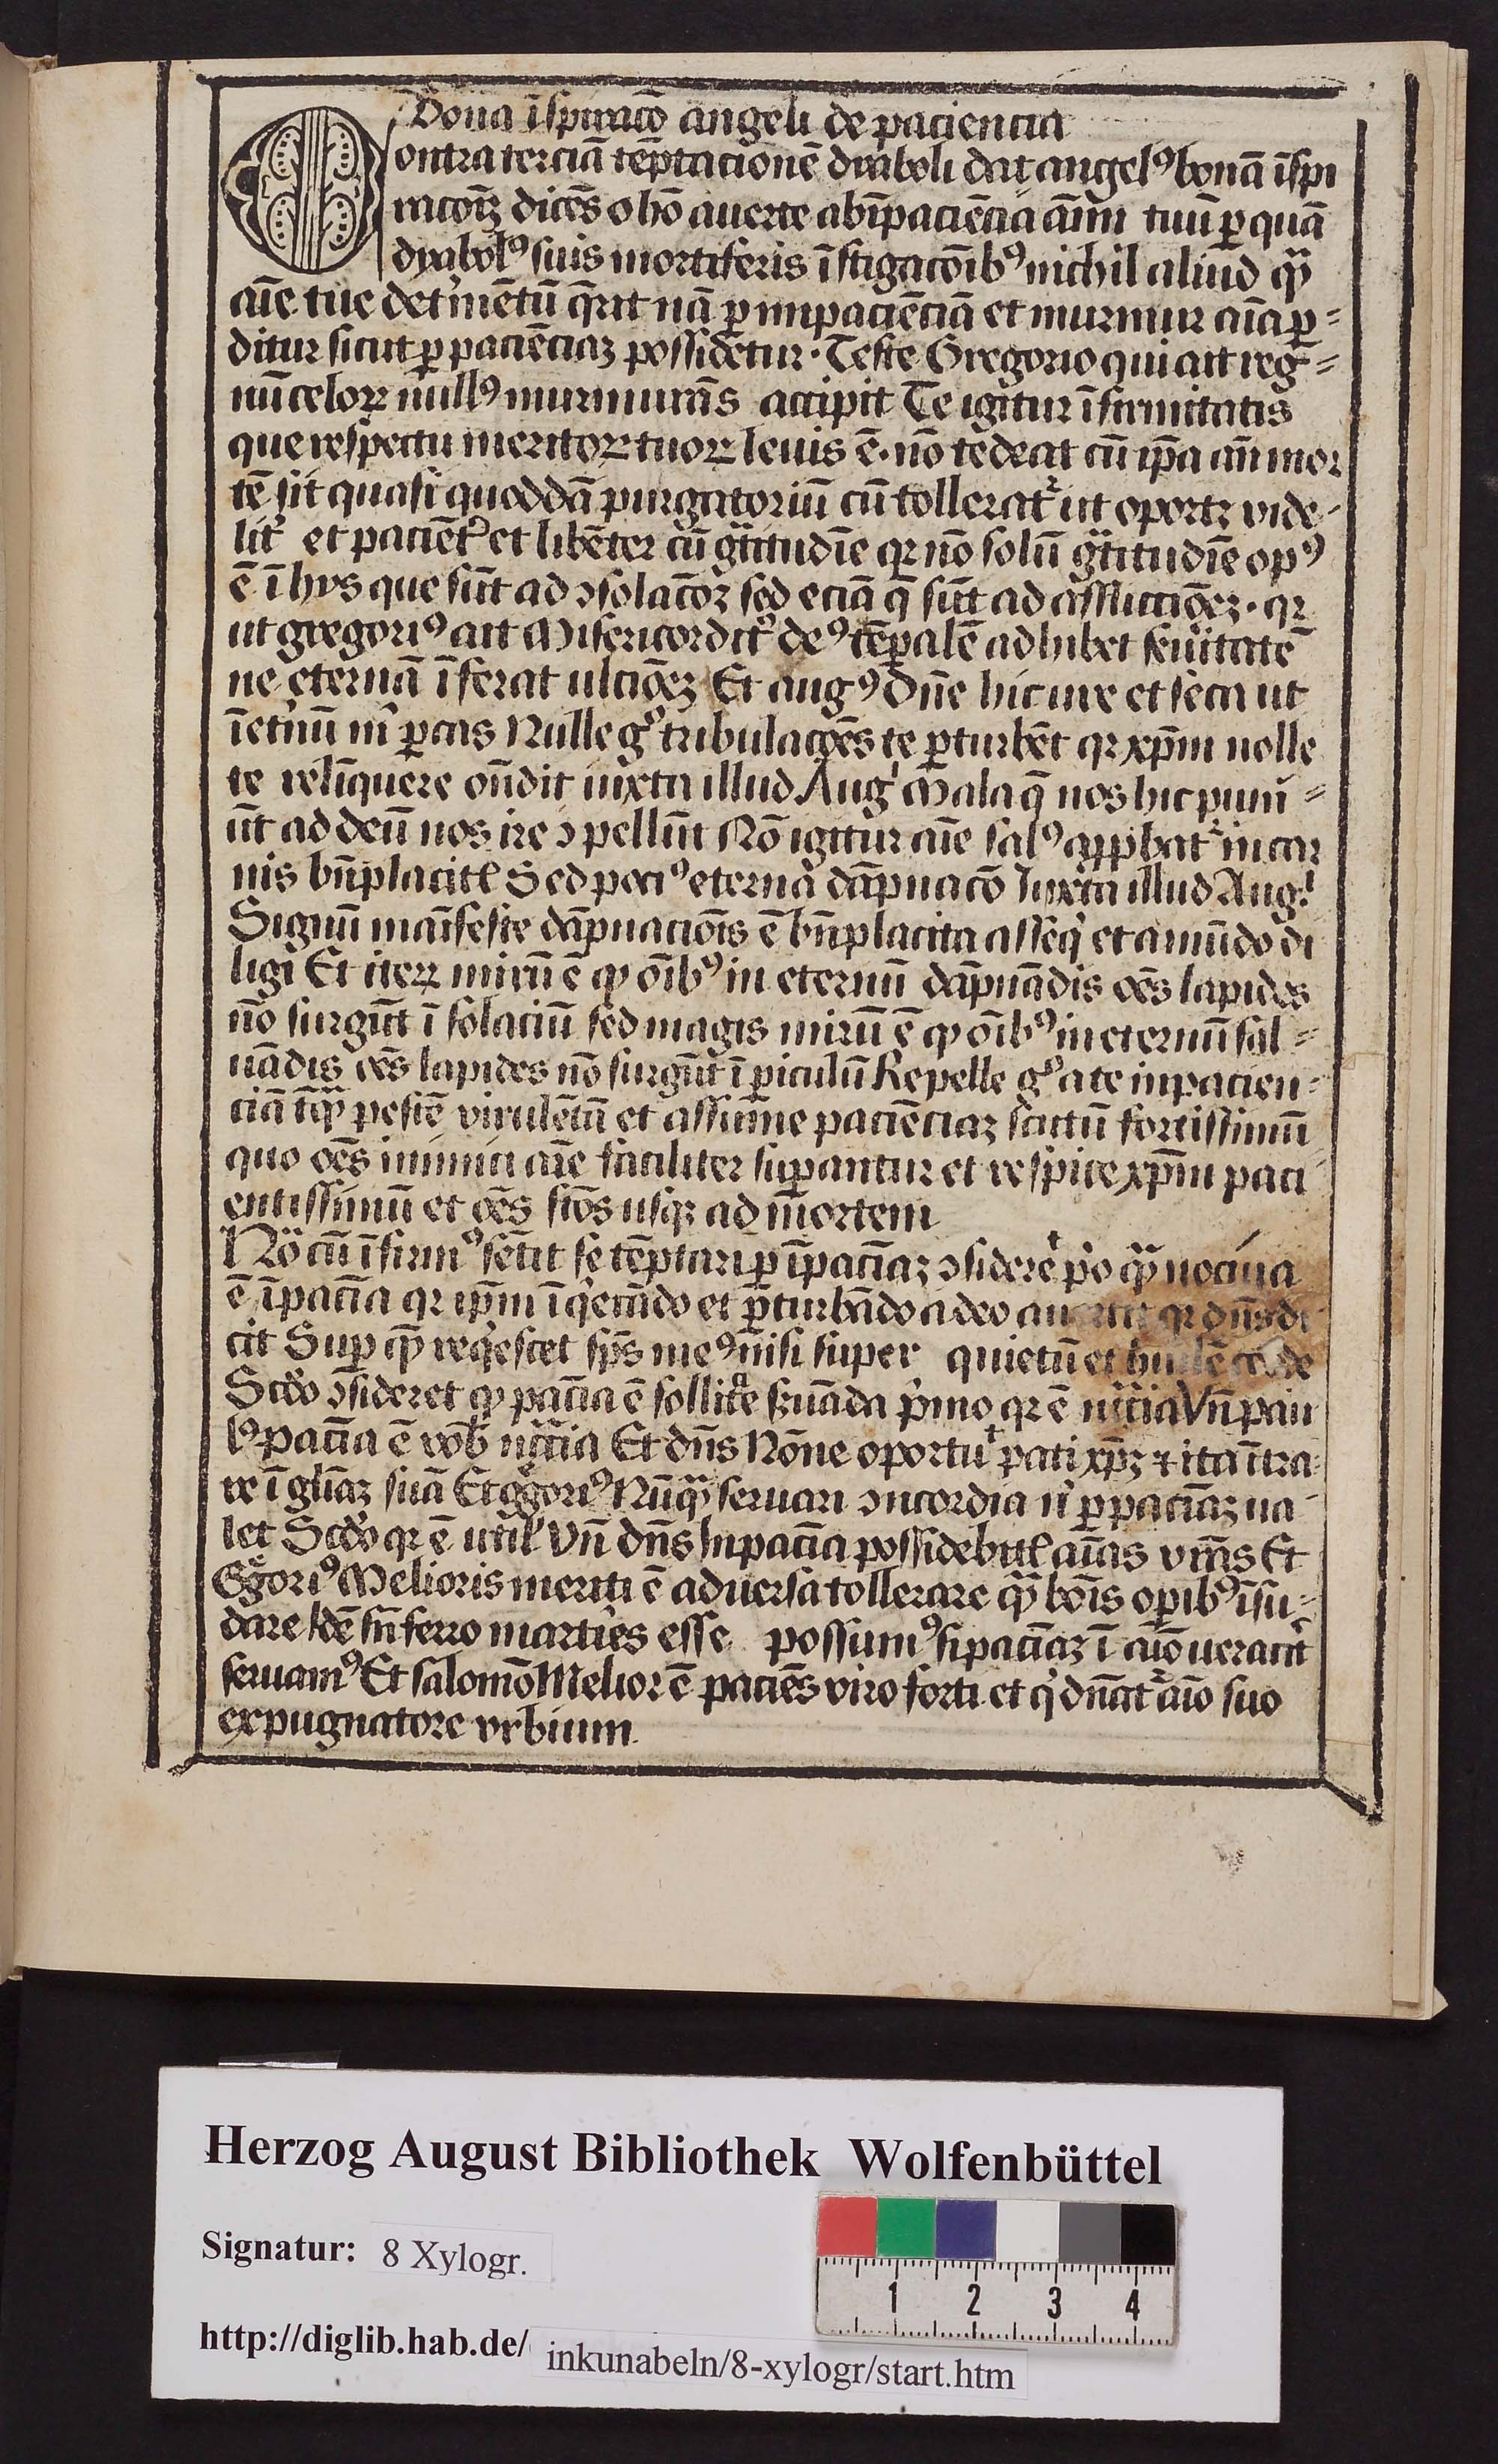 Bona īspiracō angeli de paciencia
Contra terciā tēptacionē dyaboli dat angelꝰ bonā īspi
racōꝫ dicēs o hō auerte ab īpaciēcia aīm tuū ꝑ quā
dyabolꝰ suis mortiferis īstigacōibꝰ nichil aliud qͣꝫ
aīe tue det'mētū q̄rit nā ꝑ impaciēciā et murmur aīa ꝑ⸗
ditur sicut ꝑ paciēciaꝫ possidetur · Teste Gregorio qui ait reg⸗
nū celoꝝ nullꝰ murmurās accipit Te igitur īfirmitatis
que respectu meritoꝝ tuoꝝ leuis ē · nō tedeat cū ip̄a an̄ mor
tē sit quasi quoddā purgatoriū cū tolleratᷣ ut oportꝫ vide⸗
lit' et paciēt' et libēter cū gͣtitudīe qꝛ nō solū gͣtitudīe opꝰ
ē ī hys que sūt ad ↄsolacōꝫ sed eciā q̄ sūt ad afflictiōeꝫ · qꝛ
ut gregoriꝰ ait Misericordit' deꝰ tēꝑalē adhibet seu'itatē
ne eternā īferat ulciōeꝫ Et augꝰ Dn̄e hic ure et seca ut
ī et'nū m' ꝑcas Nulle gͦ tribulacōēs te ꝑturbēt qꝛ xp̄m nolle
te relīquere on̄dit iuxta illud Aug' Mala q̄ nos hic puni⸗
ūt ad deū nos ire ↄpellūt Nō igitur aīe salꝰ app̱batᷣ in car
nis bn̄placitꝭ Sed pociꝰ eterna dāpnacō Iuxta illud Aug'
Signū manifeste dāpnaciōis ē bn̄placita asseq' et a mūdo di
ligi Et iteꝝ mirū ē ꝙ oībꝰ in eternū dāpnādis oēs lapides
nō surgūt ī solaciū sed magis mirū ē ꝙ oībꝰ in eternū sal⸗
uādis oēs lapides nō surgūt ī ꝑiculū Repelle gͦ a te inpacien⸗
ciā tāqͣꝫ pestē virulētā et assume paciēciaꝫ scutū fortissimū
quo oēs inimici aīe faciliter suꝑantur et respice xp̄m paci⸗
entissimū et oēs sc̄os usqꝫ ad mortem
Nō cū īfirmꝰ sētit se tēptari ꝑ īpacīaꝫ ↄsideret p'o qͣꝫ nociua
ē īpacīa qꝛ ip̄m īq'etādo et ꝑturbādo a deo qꝛ dn̄s di
cit Suꝑ qͣꝫ req'escet sp̄s meꝰ nisi super quietū et
Scdo ↄsideret ꝙ pacīa ē sollicite s'uāda p'mo qꝛ ē nccīa Vn̄ pau
lꝰ pacīa ē vob' nccīa Et dn̄s Nōne oportuit pati xp̄ꝫ ⁊ ita ītra⸗
re ī gl̄iaꝫ suā Et gͤgoriꝰ Nūqͣꝫ seruari ↄncordia n' ꝑ pacīaꝫ ua⸗
let Scdo qꝛ ē util' Vn̄ dn̄s In pacīa possidebitꝭ aīas vr̄as Et
Ggͤoriꝰ Melioris meriti ē aduersa tollerare qͣꝫ bōis oꝑibꝰ īsu⸗
dare Idē sn̄ ferro martires esse possumꝰ si pacīaꝫ ī aīo ueracit'
seruamꝰ Et salomō Melior ē paciēs viro forti et q' dn̄atᷣ aīo suo
expugnatore vrbium
Herzog August Bibliothek Wolfenbüttel
Signatur: 8 Xylogr.
1 2 3 4
http://diglib.hab.de/ inkunabeln/8-xylogr/start.htm